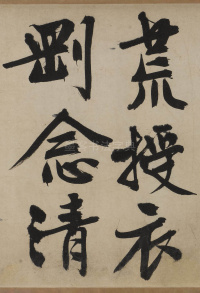 荒授衣
剛念清